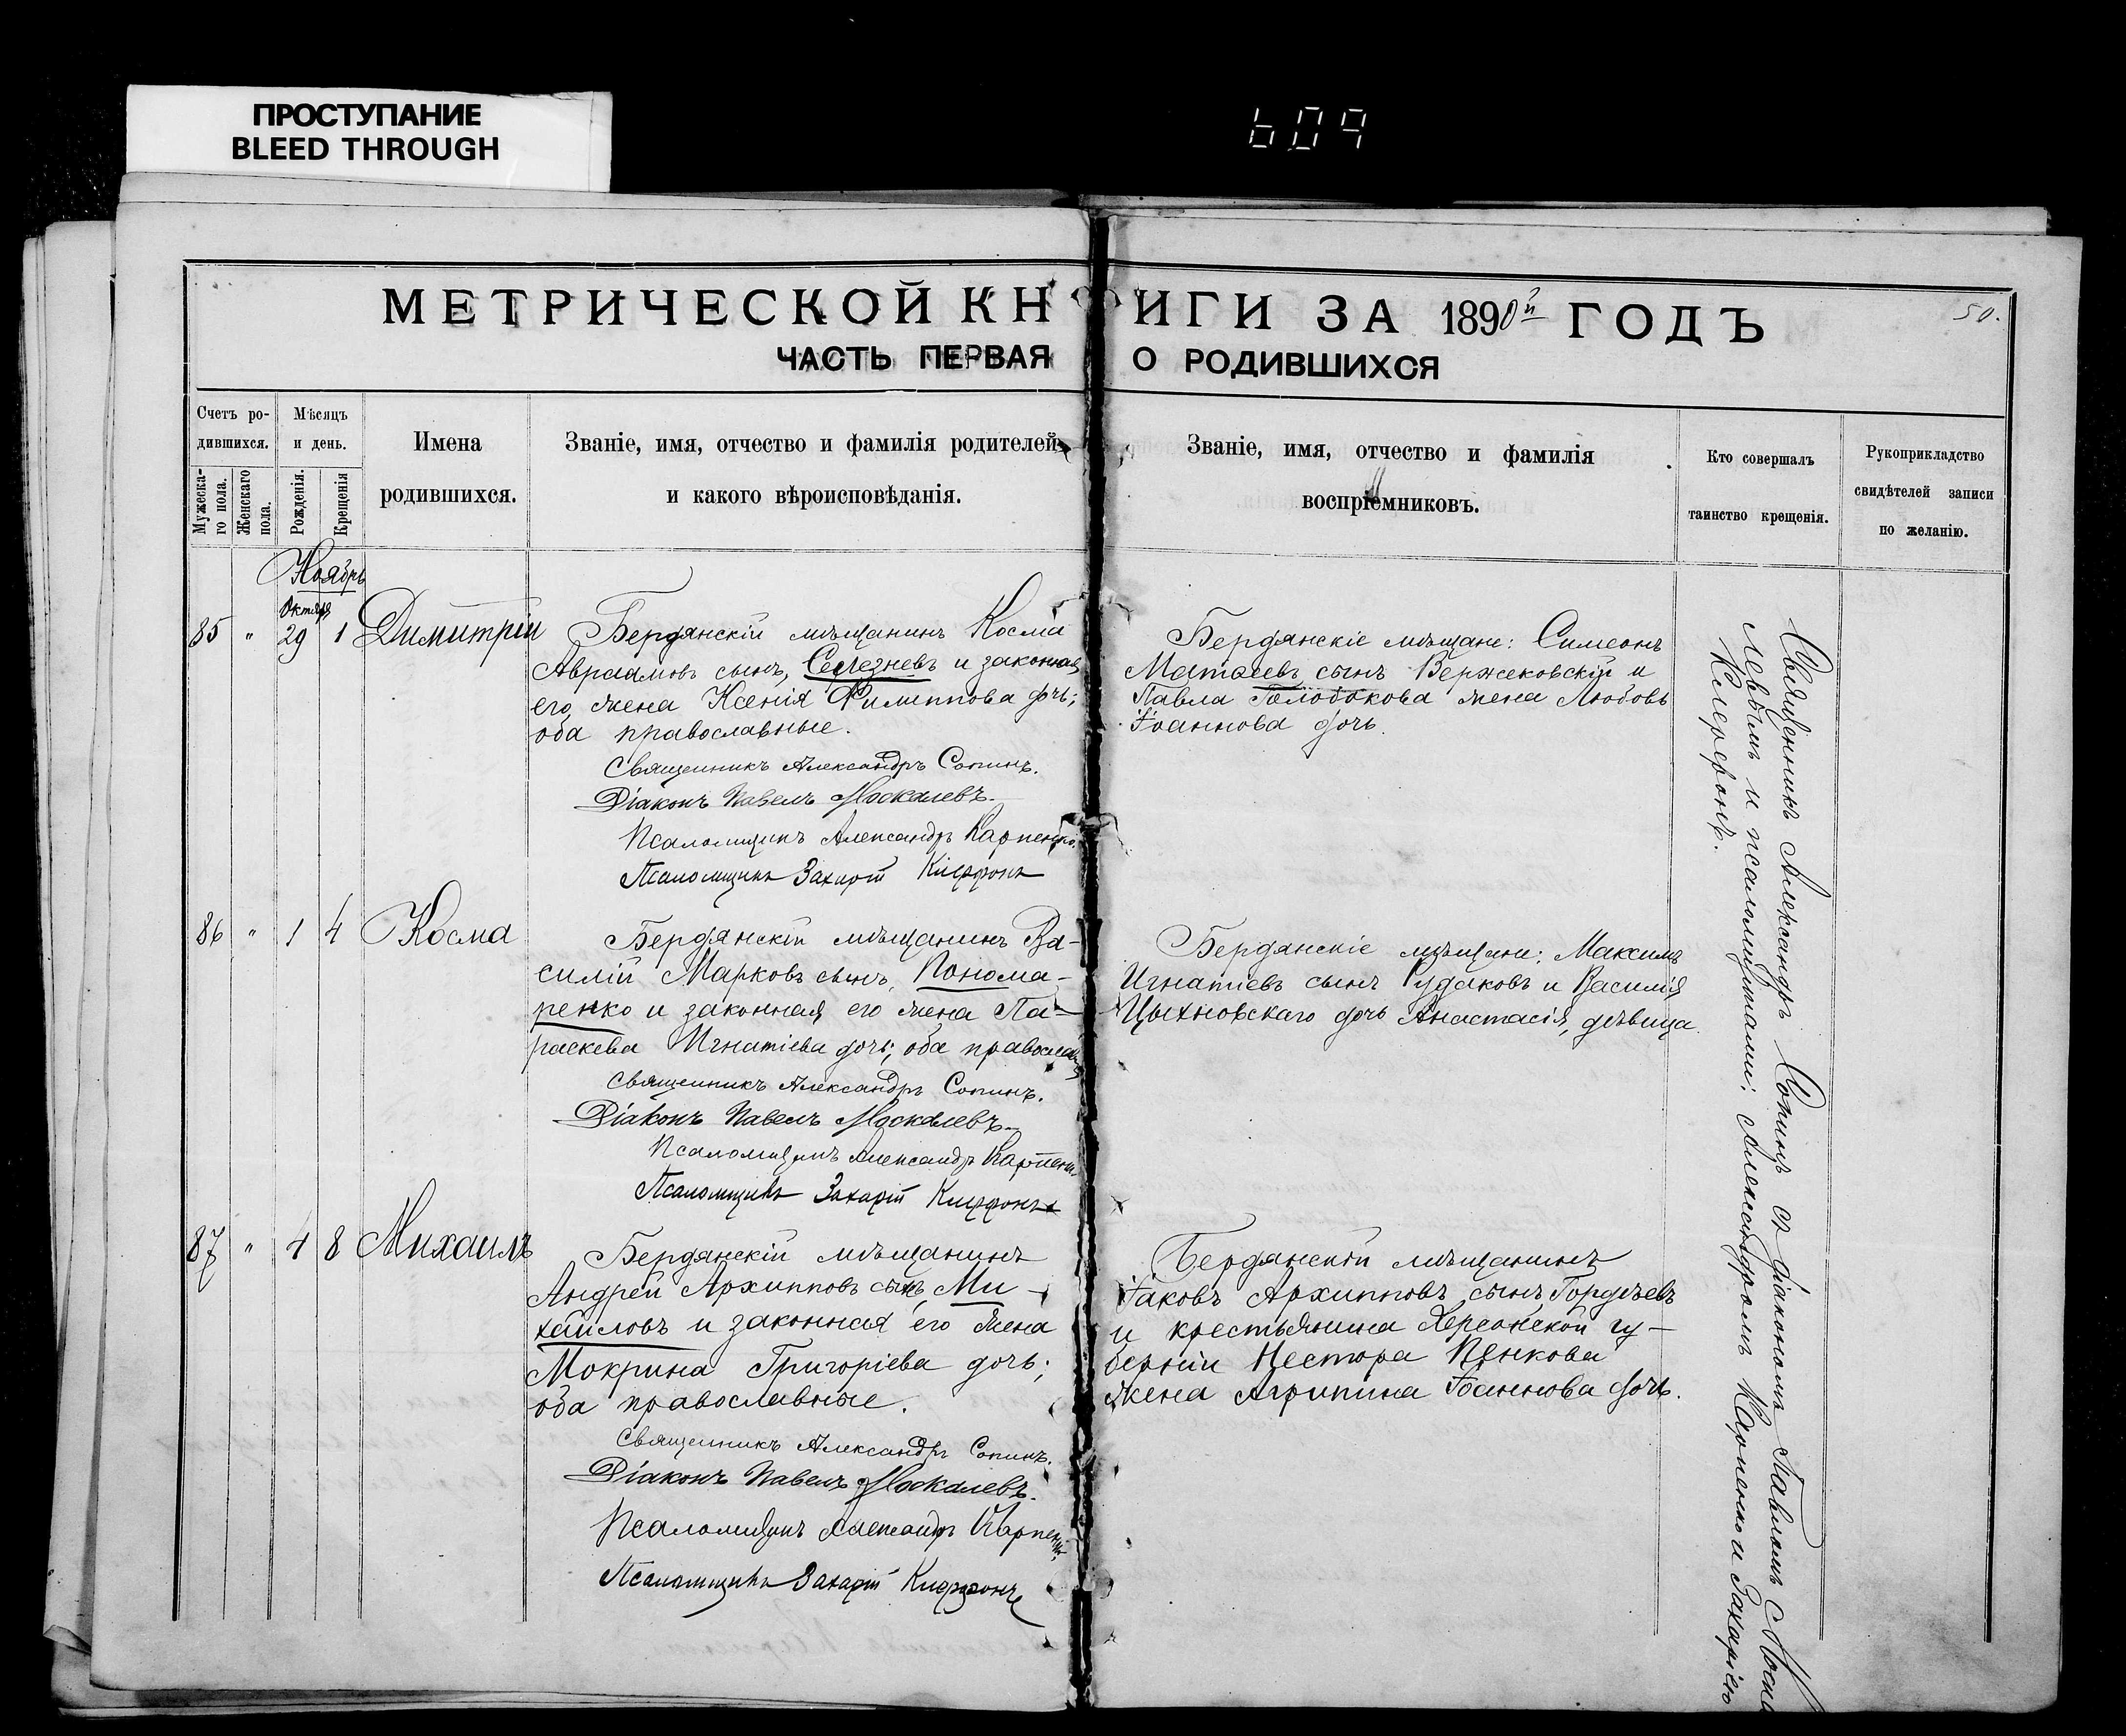 ПРОСТУПАНИЕ
BLEED THROUGH
609
МЕТРИЧЕСКОЙ КНИГИ ЗА 1890й ГОДЪ
50.
ЧАСТЬ ПЕРВАЯ О РОДИВШИХСЯ
Счетъ ро-
дившихся.
Мужеска-
го пола.
Женскаго
пола.
Мѣсяцъ
и день.
Рожденія.
Крещенія
Имена
родившихся.
Званіе, имя, отчество и фамилія родителей
и какого вѣроисповѣданія.
Званіе, имя, отчество и фамилія
воспріемниковъ.
Кто совершалъ
таинство крещенія.
Рукоприкладство
свидѣтелей записи
по желанію.
Ноябрь
Октября
85 " 29 1 Димитрій
Бердянскій мѣщанинъ Косма
Авраамовъ сынъ, Селезневъ и законная
его жена Ксенія Филиппова дочь;
оба православные.
Священникъ Александръ Сопинъ.
Діаконъ Павелъ Москалевъ.
Псаломщикъ Александръ Карпенко.
Псаломщикъ Захарій
Бердянскіе мѣщане: Симеонъ
Матѳеевъ сынъ Вержековскій и
Павла Голобокова жена Любовь
Іоаннова дочь.
86 " 1 4 Косма
Бердянскій мѣщанинъ Ва-
силій Марковъ сынъ, Понома-
ренко и законная его жена Па-
раскева Игнатіева дочь; оба православные
Священникъ Александръ Сопинъ.
Діаконъ Павелъ Москалевъ.
Псаломщикъ Александръ Карпенко
Псаломщикъ Захарій
Бердянскіе мѣщане: Максимъ
Игнатіевъ сынъ Рудаковъ и Василія
Цыхновскаго дочь Анастасія, дѣвица.
87 " 4 8 Михаилъ
Бердянскій мѣщанинъ
Андрей Архипповъ сынъ, Ми-
хайловъ и законная его жена
Мокрина Григоріева дочь;
оба православные.
Священникъ Александръ Сопинъ.
Діаконъ Павелъ Москалевъ.
Псаломщикъ Александръ Карпенко
Псаломщикъ Захарій
Бердянскій мѣщанинъ
Іаковъ Архипповъ сынъ Гордѣевъ
и крестьянина Херсонской гу-
берніи Нестора Пенкова
жена Агрипина Іоаннова дочь.
Священникъ Александръ Сопинъ съ діакономъ Павломъ Моска
левымъ и псаломщиками: Александромъ Карпенко и Захаріемъ